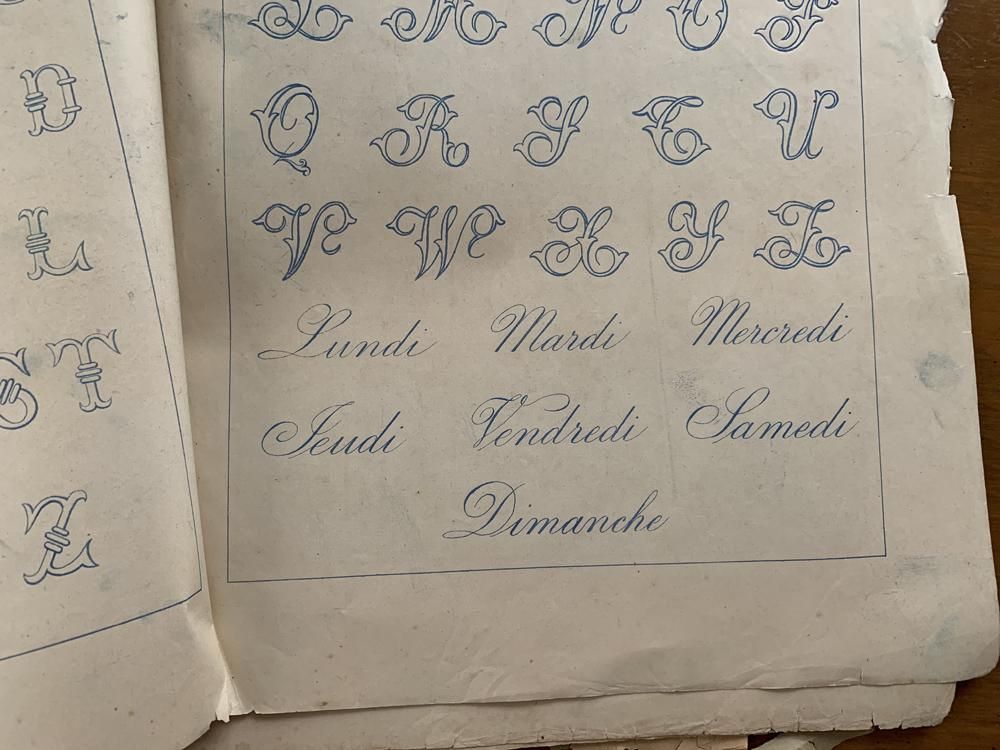 D
L
S T
Z
L M N O P
Q R S T U
V W X Y Z
Lundi Mardi Mercredi
Jeudi Vendredi Samedi
Dimanche